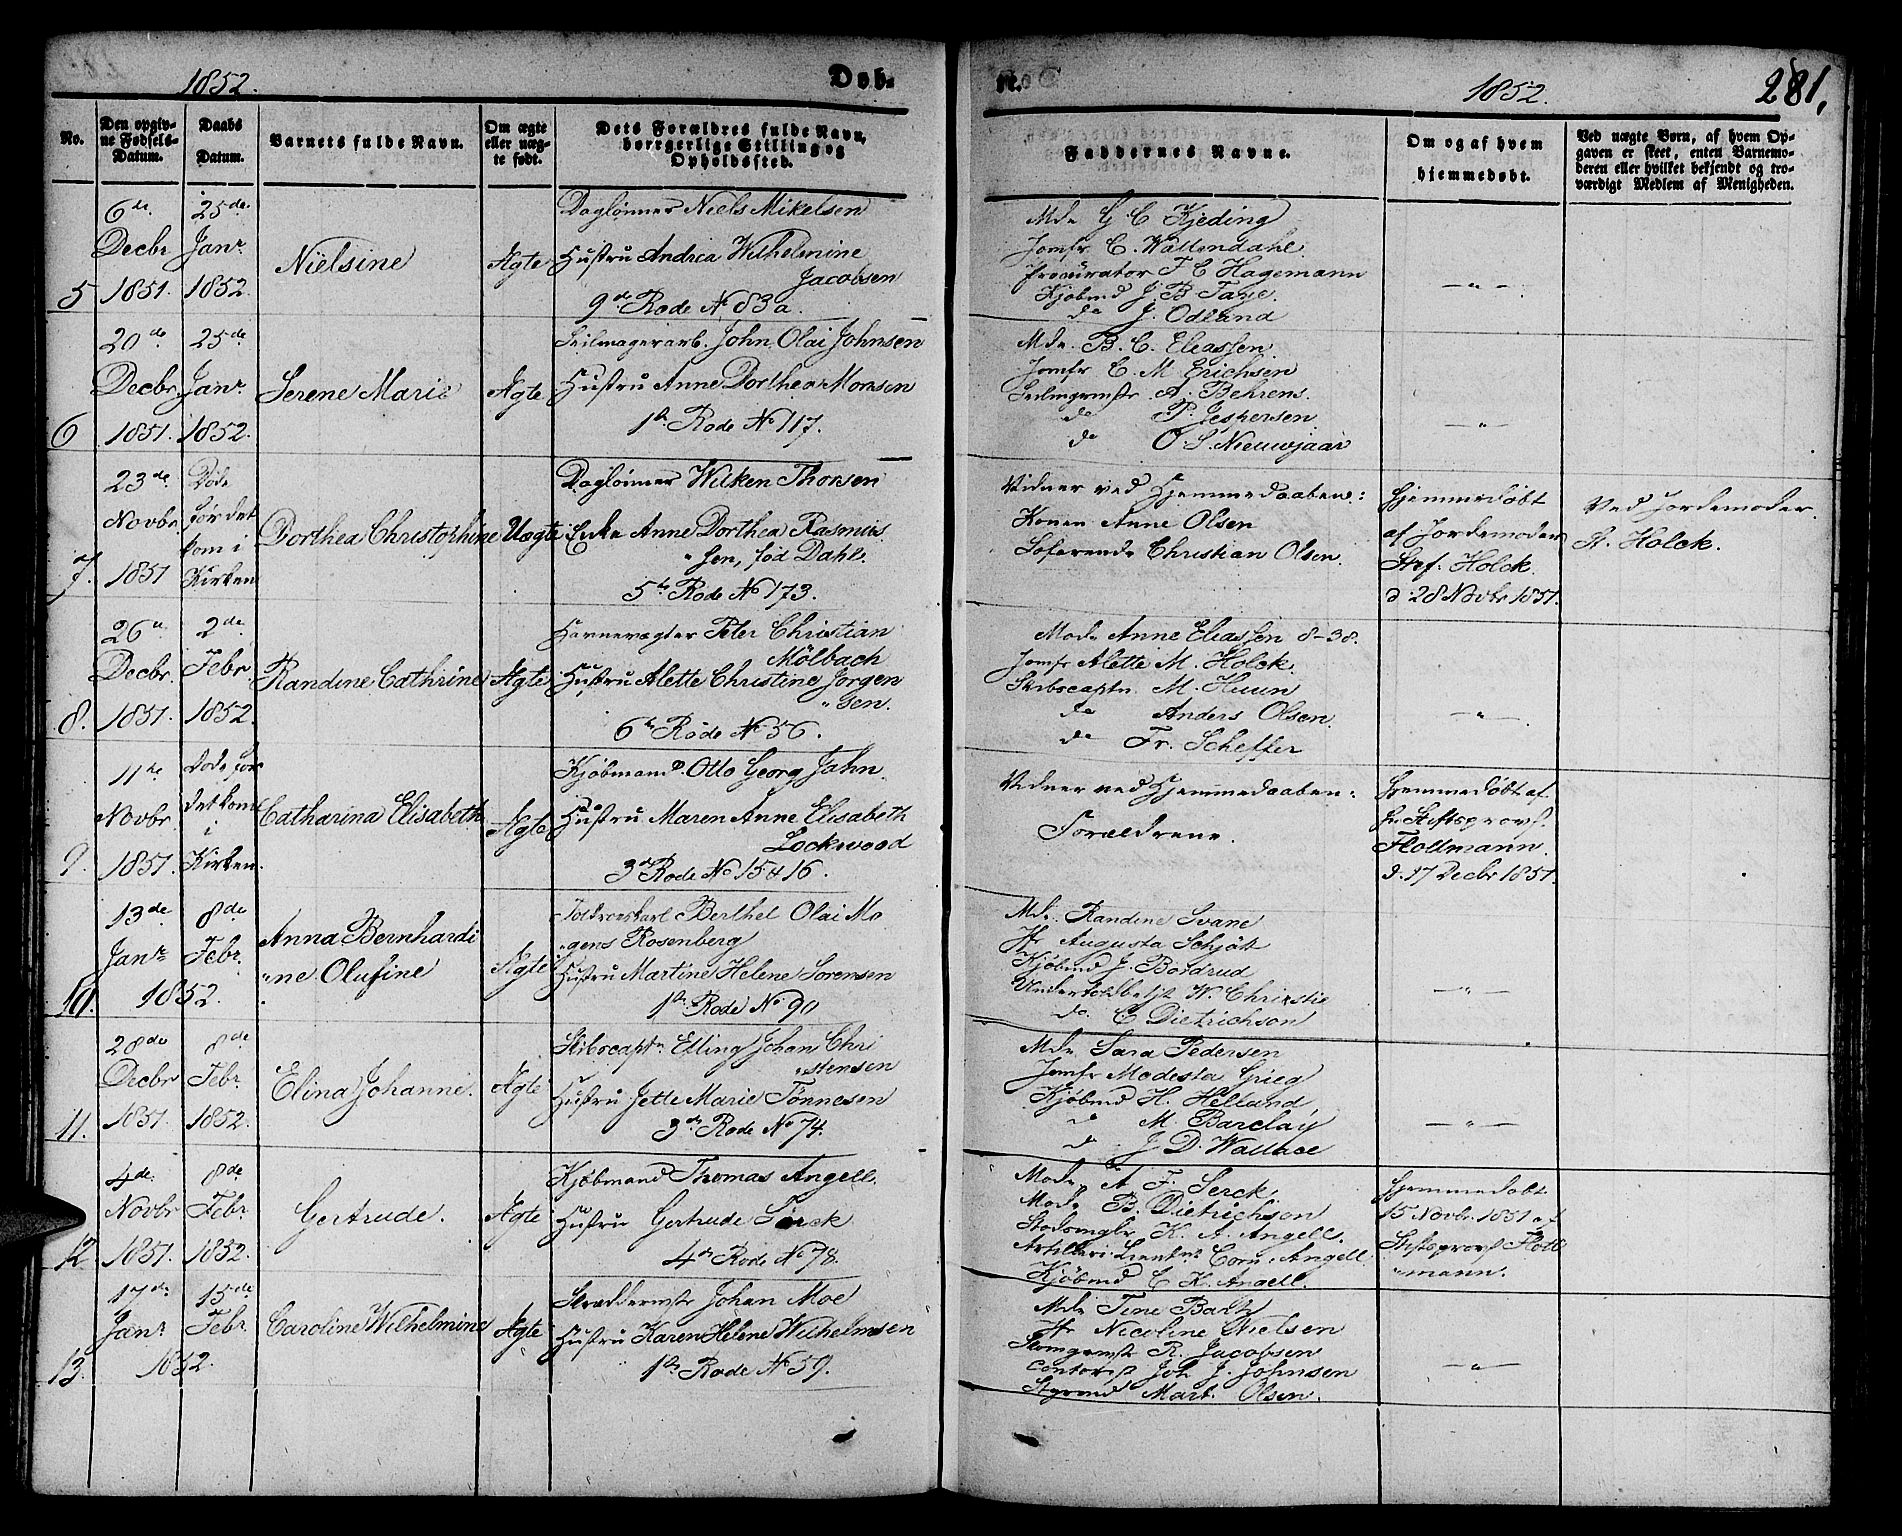 1852.
Døb-
No.
Den opgiv-
ne Fødsels-
Datum.
Daabs
Datum.
Barnets fulde Navn.
Om ægte
eller uæg-
te født.
Dets Forældres fulde Navn,
borgerlige Stilling og
Opholdssted.
5
6te
Decbr
1851.
25de
Janr
1852.
Nielsine
Ægte
Daglønner Niels Mikelsen
Hustru Andrea Wilhelmine
Jacobsen
9de Rode No 83a.
6
20de
Decbr
1851.
25de
Janr
1852.
Serene Marie
Ægte
Seilmagerarb. John Olai Johnsen
Hustru Anne Dorthea Monsen
1ste Rode No 117.
7.
23de
Novbr
1851
Døde
før det
kom i
Kirken
Dorthea Christophine
Uægte
Daglønner Wilken Thorsen
Enke Anne Dorthea Rasmus
"sen, fød Dahl.
5te Rode No 173.
8.
26de
Decbr.
1851.
2de
Febr
1852.
Randine Cathrine
Ægte
Havnevægter Peter Christian
Mölbach
Hustru Alette Christine Jorgen
"sen.
6te Rode No 56.
9.
11te
Novbr
1851.
Døde før
det kom
i
Kirken.
Catharina Elisabeth
Ægte
Kjøbmand Otto Georg Jahn
Hustru Maren Anne Elisabeth
Lockwood
3die Rode No 15 & 16.
10.
13de
Janr
8de
Febr.
1852.
Anna Bernhardi
"ne Olufine
Ægte
Toldroeskarl Berthel Olai Mo
"gens Rosenberg
Hustru Martine Helene Sorensen
1ste Rode No 90
11.
28de
Decbr
1851.
8de
Febr.
1852.
Elina Johanne.
Ægte
Skibscaptn. Elling Johan Chri
"stensen
Hustru Jette Marie Tönnesen
3die Rode No 74.
12
4de
Novbr
1851.
8de
Febr.
1852.
Gertrude.
Ægte
Kjøbmand Thomas Angell.
Hustru Gertrude Serck
4de Rode No 78.
13.
17de
Janr
15de
Febr
1852.
Caroline Wilhelmine
Ægte
Skræddermstr Johan Moe
Hustru Karen Helene Wilhelmsen
1ste Rode No 59.
te.
1852.
281.
Faddernes Navne.
Om og af hvem
hjemmedøbt.
Ved uægte Børn, af hvem Op-
gaven er skeet, enten Barnemo-
deren eller hvilket bekjendt og tro-
værdigt Medlem af Menigheden.
Mde G C Kjeding
Jomfr C. Wallendahl
Procurator F C Hagemann
Kjøbmd J. B Faye.
do J. Odland
— " —
Mde. B. C. Eleassen.
Jomfr C. M Erichsen
Seilmgrmstr A. Behrens.
do P. Jespersen
do O. S. Nieuwjaar
— " —
Vidner ved Hjemmedaaben:
Konen Anne Olsen
Søfarende Christian Olsen.
Hjemmedøbt
af Jordemoder
Stef. Holck
d: 28 Novbr 1851.
Ved Jordemoder
St. Holck.
Made Anne Eliassen 8-38.
Jomfr Alette M. Holck.
Skibscaptn. M. Huun
do Anders Olsen.
do Fr. Scheffer
— " —
Vidner ved Hjemmedaaben:
Forældrene.
Hjemmedøbt af
Hr Stiftsprovst
Flottmann.
d. 17 Decbr 1851.
Mde. Randine Svane
Jfr Augusta Schjött
Kjøbmd J. Bordrud
Undertoldbetjt W. Christie
do C Dietrichson
— " —
Mde Sara Pedersen
Jomfr Modesta Grieg
Kjøbmd H. Helland,
do M. Barclay
do J. D. Wallace
— " —
Made A F. Serck.
Made B. Dietrichson
Stadsmglr K. A. Angell.
Artilleri-Lieutnt Corn. Angell.
Kjøbmd C K. Angell.
Hjemmedøbt
15 Novbr. 1851 af
Stiftsprovst Flott
"mann.
Mde Tine Barth
Jfr Nicoline Nielsen
Skomgrmstr R. Jacobsen
Contorist Joh J. Johnsen
Styrmd Mart. Olsen.
— " —